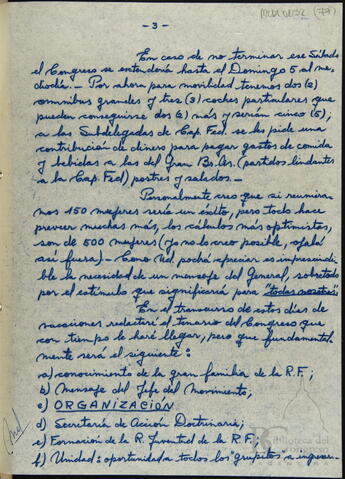 - 3 -
En caso de no terminar ese Sábado
el Congreso se extendería hasta el Domingo 5 al me-
diodía.- Por ahora para movilidad tenemos dos (2)
omnibus grandes y tres (3) coches particulares que
pueden conseguirse dos (2) más y serían cinco (5);
a las Subdelegadas de Cap. Fed. se les pide una
contribución de dinero para pagar gastos de comida
y bebidas a las del Gran Bs. As. (partidos lindantes
a la Cap. Fed) postres y salados.-
Personalmente creo que si reunira-
mos 150 mujeres sería un éxito, pero todo hace
preveer muchas más, los cálculos más optimistas,
son de 500 mujeres (yo no lo creo posible, ojalá
así fuera) - Como Ud. podrá apreciar es imprescindi-
ble la necesidad de un mensaje del General, sobretodo
por el estímulo que significaría para "todas nosotras"
En el transcurso de estos días de
vacciones redactaré el temario del Congreso que
con tiempo le haré llegar, pero que fundamental-
mente será el siguiente:
a) conocimiento de la gran familia de la R.F.;
b) Mensaje del Jefe del Movimiento;
c) ORGANIZACIÓN
d) Secretaría de Acción Doctrinaria;
e) Formación de la R. Juventud de la R.F.;
f) Unidad: oportunidad a todos los "grupitos a
Biblioteca del
ARGENTINA